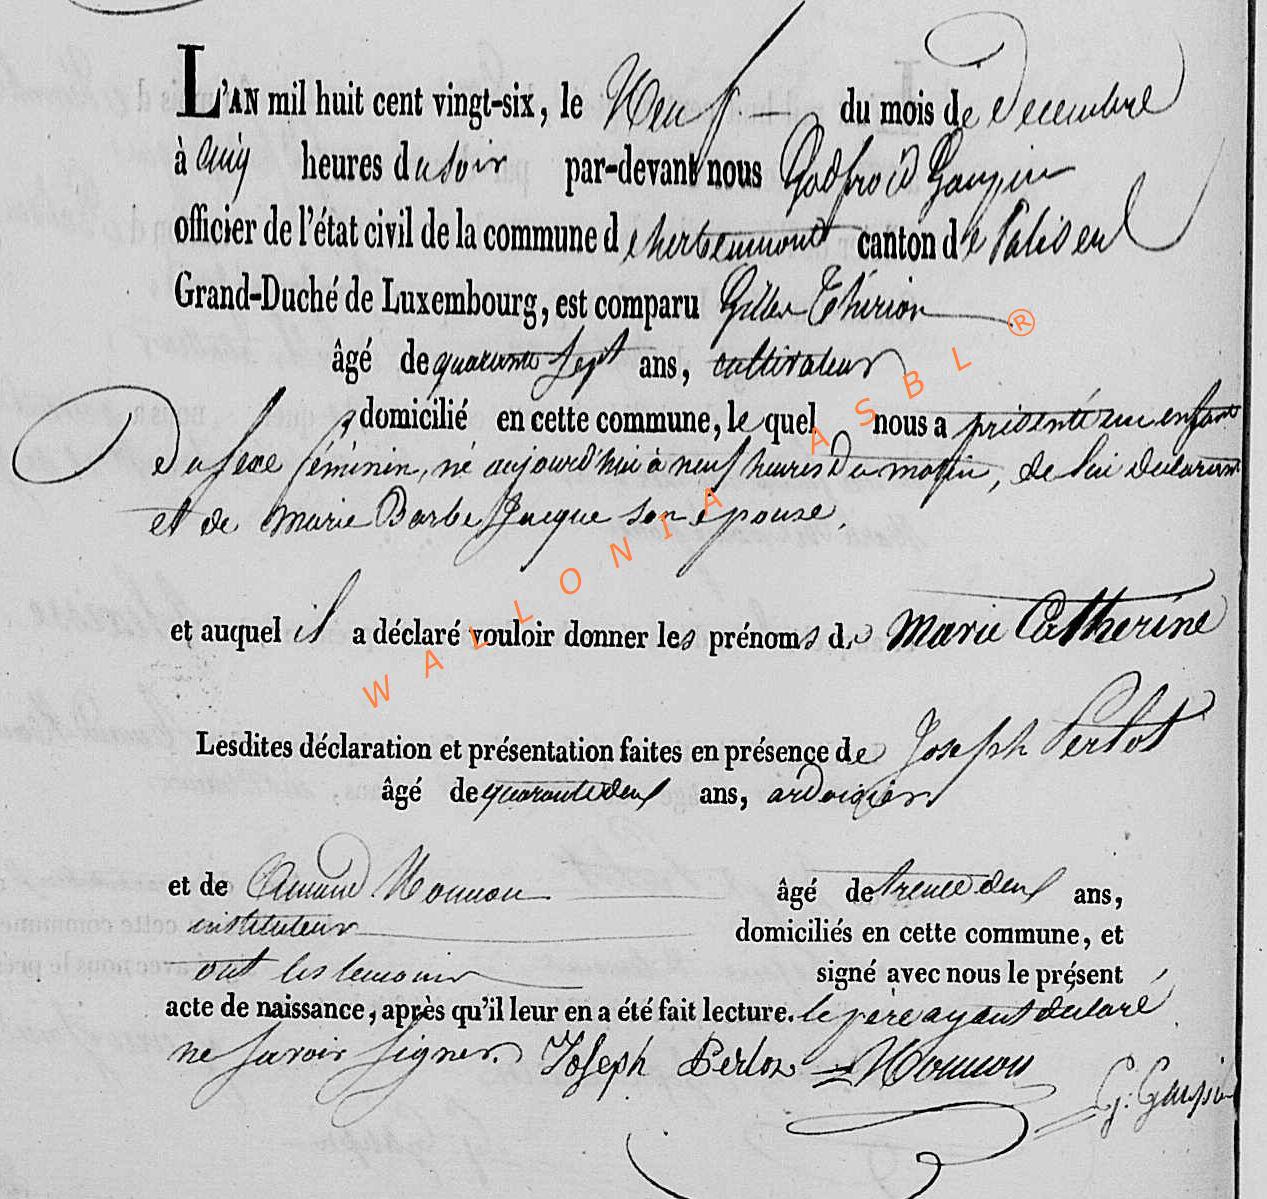 L'AN mil huit cent vingt-six, le Neuf du mois de Decembre
à cinq heures du soir par-devant nous Godfroid Gaupin
officier de l'état civil de la commune d'herbeumont canton de Paliseul
Grand-Duché de Luxembourg, est comparu Gilles Thirion
âgé de quarante sept ans, cultivateur
domicilié en cette commune, le quel nous a présenté un enfant
du sexe féminin, né aujourd'hui à neuf heures du matin, de lui déclarant
et de Marie Barbe Jacque son épouse,
et auquel il a déclaré vouloir donner les prénoms de Marie Catherine
Lesdites déclaration et présentation faites en présence de Joseph Perlot
âgé de quarante deux ans, ardoisier
et de Amand Monnon âgé de trente deux ans,
instituteur domiciliés en cette commune, et
ont les temoins signé avec nous le présent
acte de naissance, après qu'il leur en a été fait lecture. le père ayant declaré
ne savoir signer. Joseph Perlot Monnon
G. Gaupin
WALLONIA ASBL ®